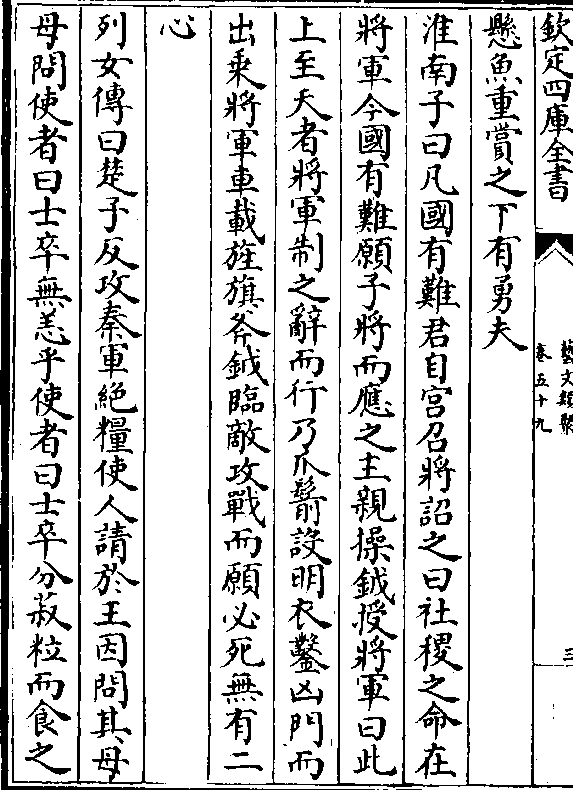 欽定四庫全書
藝文類聚
卷五十九
三
懸魚重賞之下有勇夫
淮南子曰凡國有難君自宮召將詔之曰社稷之命在
將軍今國有難願子將而應之主親操鉞授將軍曰此
上至天者將軍制之辭而行乃爪鬋設明衣鑿凶門而
出乘將軍車載旌旗斧鉞臨敵攻戰而願必死無有二
心
列女傳曰楚子反攻秦軍絕糧使人請於王因問其母
母問使者曰士卒無恙乎使者曰士卒分菽粒而食之